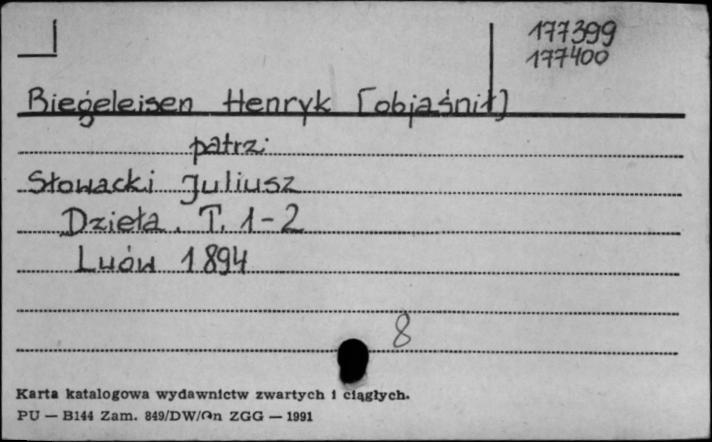 177399
177400
Biegeleisen Henryk [objaśnił]
patrz:
Słowacki Juliusz
Dzieła. T. 1-2
Lwów 1894
8
Karta katalogowa wydawnictw zwartych i ciągłych.
PU — B144 Zam. 849/DW/On ZGG — 1991